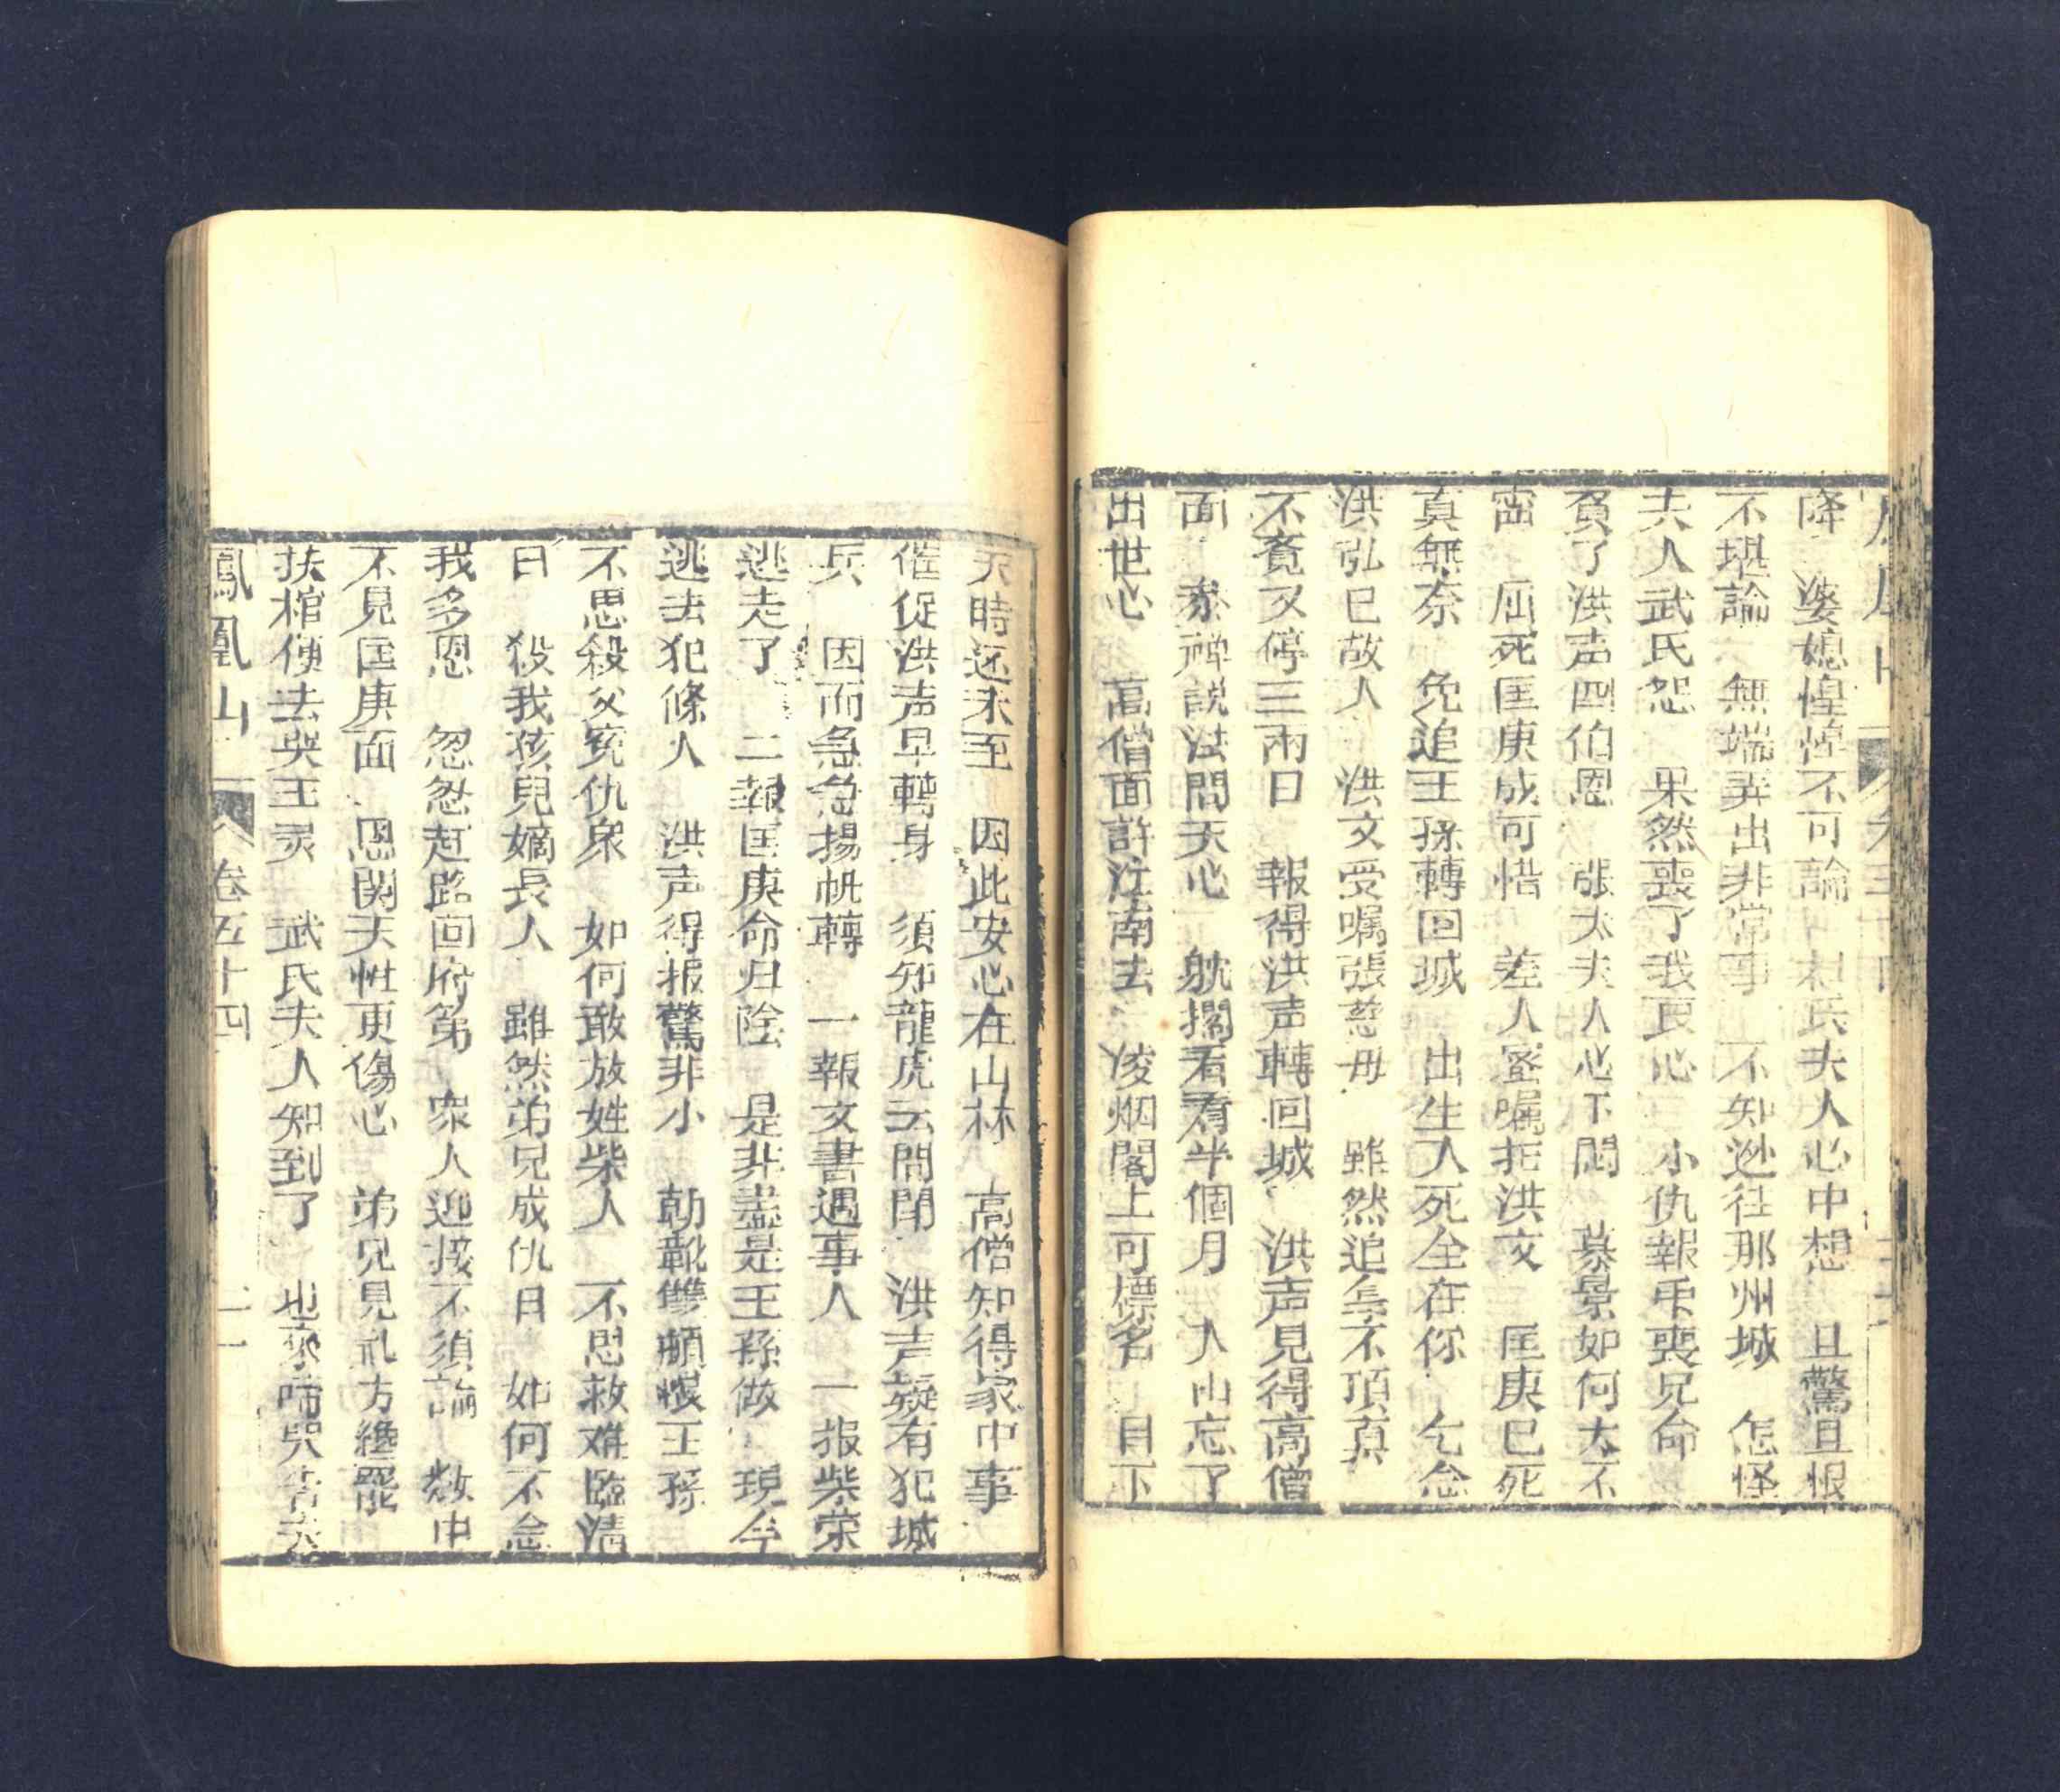 降 婆媳惶惶不可論 夫人心中想 且驚且恨
不堪論 無端弄出非常事 不知逃往那州城 怎怪
夫人武氏怨 果然喪了我良心 小仇報乎喪兄命
負了洪声四伯恩 張太夫人心下悶 慕景如何大不
密 屈死匡庚成可惜 差人密嘱托洪文 匡庚已死
真無奈 免追王孫轉回城 出生入死全在你 乞念
洪弘已故人 洪文受嘱張慈毋 雖然追急不頂真
不覔又停三兩日 報得洪声轉回城 洪声見得高僧
面 參禅説法問天心 躭擱看看有半個月 入山忘了
出世心 高僧面許江南去 凌烟閣上可標名 目下
天時还未至 因此安心在山林 高僧知得家中事
催促洪声早轉身 須知龍虎云間閙 洪声疑有犯城
兵 因而急急揚帆轉 一報文書遇事人 一报柴荣
逃走了 二報匡庚命归陰 是非盡是王孫做 現今
逃去犯條人 洪声得报驚非小 朝靴雙頓恨王孫
不思殺父寃仇衆 如何敢放姓柴人 不思救难臨清
日 殺我孩兒嫡長人 雖然弟兄成仇日 如何不念
我多恩 忽忽赶路回府第 衆人迎接不須論 数中
不見匡庚面 恩関天性更傷心 弟兄見礼方纔罷
扶棺便去哭王灵 武氏夫人知到了 也來啼哭告夫
鳳凰山 卷五十四